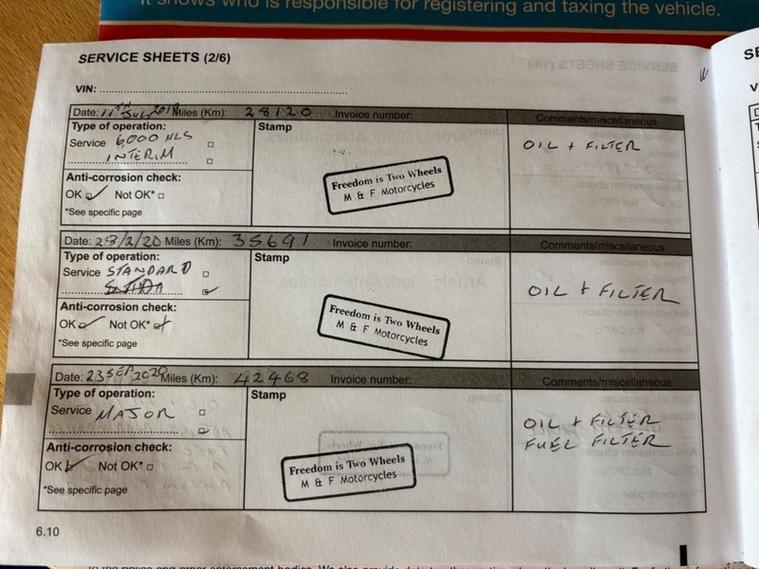 It shows who is responsible for registering and taxing the vehicle.
SERVICE SHEETS (2/6)
VIN:
Date: 11TH JULY 2019 Miles (Km): 28120 Invoice number: Comments/miscellaneous
Type of operation:
Service 6000 MLS
INTERIM
Anti-corrosion check:
OK Not OK*
*See specific page
Stamp
Freedom is Two Wheels
M & F Motorcycles
OIL + FILTER
Date: 28/2/20 Miles (Km): 35691 Invoice number: Comments/miscellaneous
Type of operation:
Service STANDARD
Anti-corrosion check:
OK Not OK*
*See specific page
Stamp
Freedom is Two Wheels
M & F Motorcycles
OIL + FILTER
Date: 23 SEP 2020 Miles (Km): 42468 Invoice number: Comments/miscellaneous
Type of operation:
Service MAJOR
Anti-corrosion check:
OK Not OK*
*See specific page
Stamp
Freedom is Two Wheels
M & F Motorcycles
OIL + FILTER
FUEL FILTER
6.10